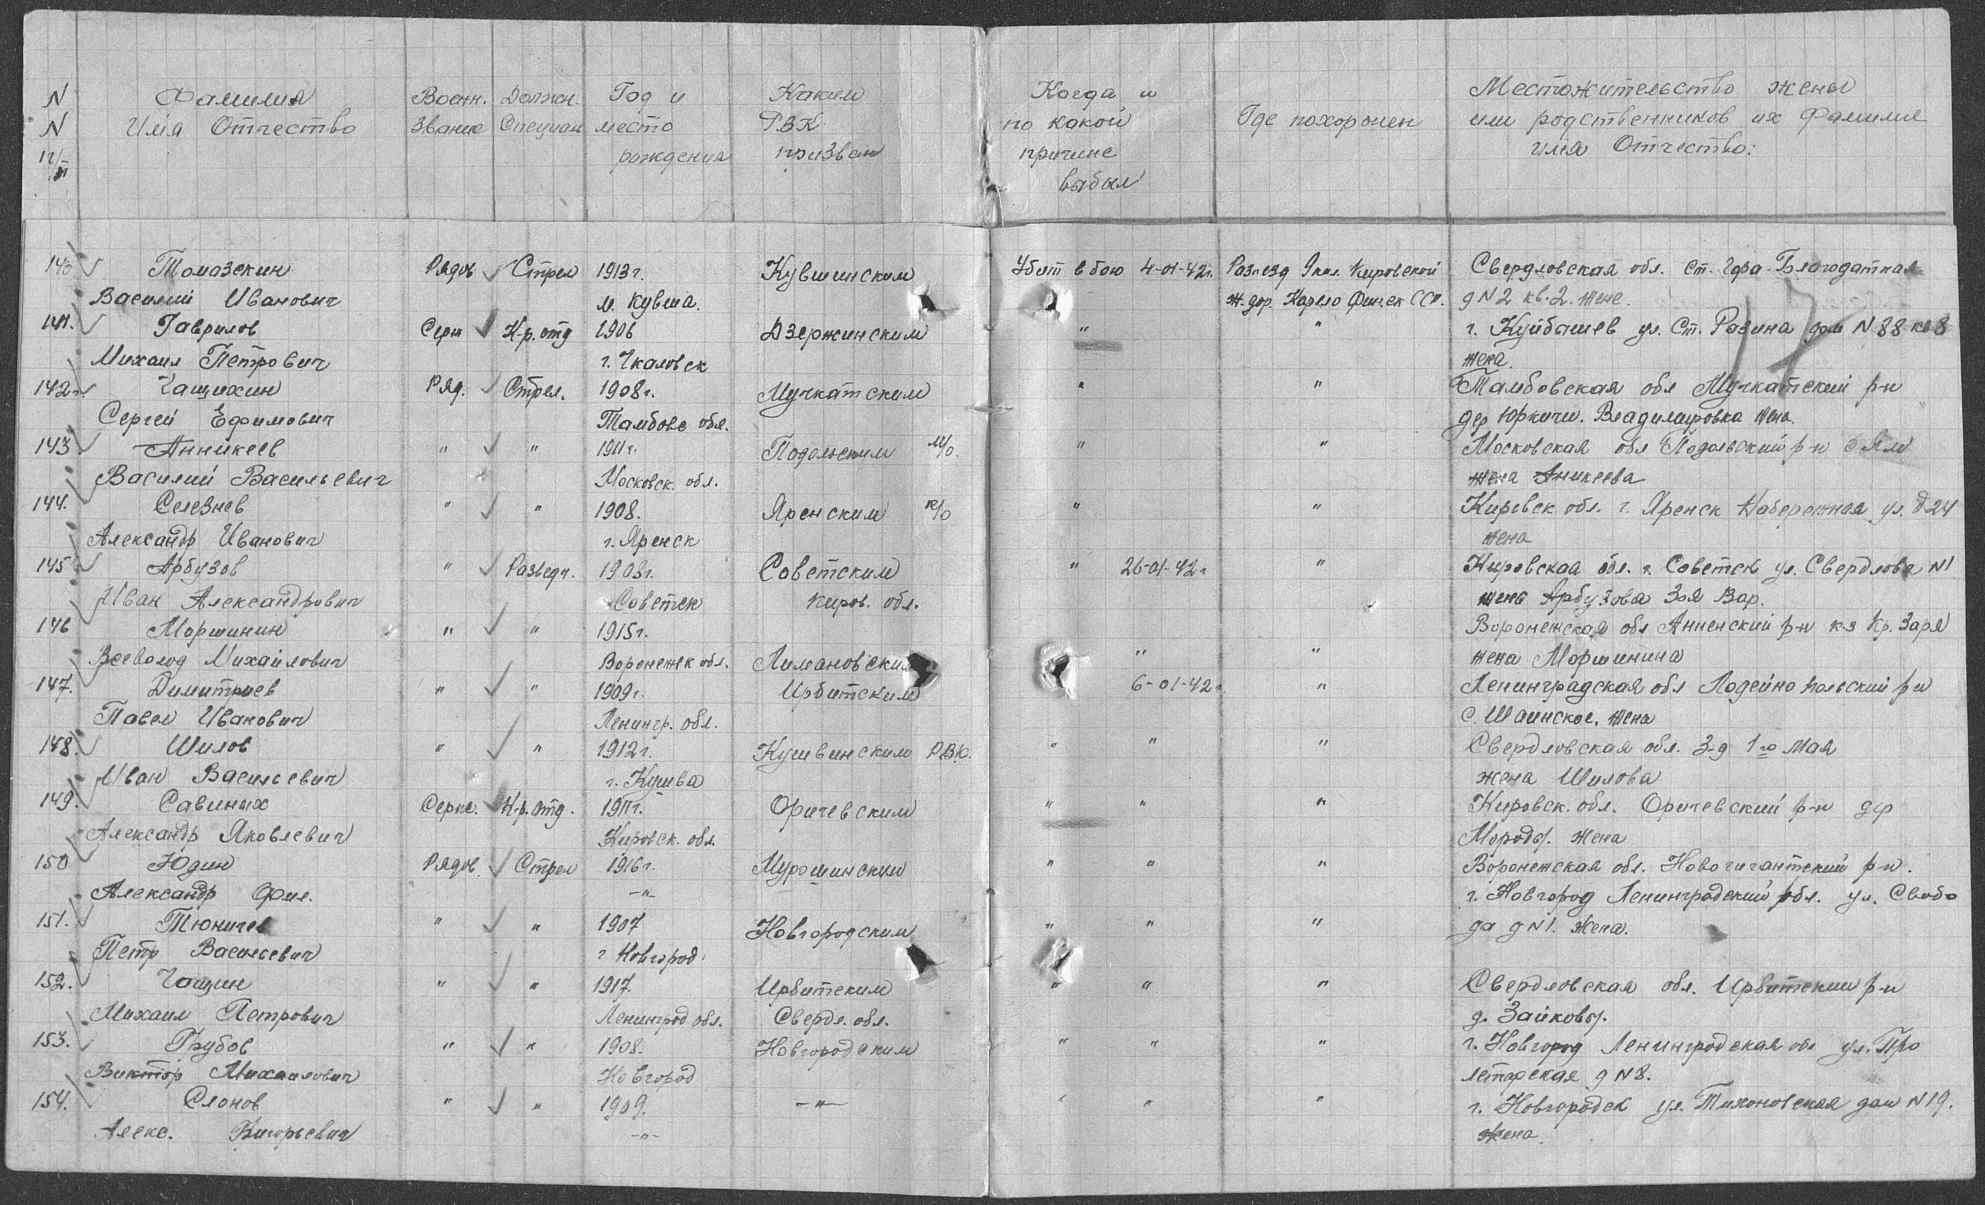 N Фамилия Воен. Должн. Год и Каким Когда и Местожительство жены
N Имя Отчество Звание Специал место РВК по какой Где похоронен или родственников их Фамилие
п/п рождения призван причине имя Отчество:
выбыл
140 Томазекин Рядов Стрел 1913 г. Кувшинским Убит в бою 4-01-42г. Разъезд 9 км. Кировской Свердловская обл. ст. Гора-Благодатная
Василий Иванович м. Кувша. ж. дор. Карело Финск ССР. д N 2 кв. 2. жене.
141. Гаврилов Серж К-р. отд 1906 Дзержинским " " г. Куйбышев ул. Ст. Разина дом N 88 кв 8
Михаил Петрович г. Чкаловск жена.
142. Чащихин Ряд. Стрел. 1908 г. Мучкатским " " Тамбовская обл Мучкатский р-н
Сергей Ефимович Тамбовс обл. дер Юркичи. Владимировка жена.
143 Анникеев " " 1911 г. Подольским " " Московская обл Подольский р-н с Ям
Василий Васильевич Московск. обл. жена Аникеева
144. Селезнев " " 1908. Яренским " " Кировск обл. г. Яренск Набережная ул. д 24
Александр Иванович г. Яренск жена
145 Арбузов " Разведч. 1903 г. Советским " 26-01-42 г " Кировская обл. г. Советск ул. Свердлова N 1
Иван Александрович Советск Киров. обл. жена Арбузова Зоя Вар.
146 Моршинин " " 1915 г. Воронежская обл Анненский р-н кз Кр. Заря
Всеволод Михайлович Воронежск обл. Лимановским " " жена Моршинина
147. Димитриев " " 1909 г. Ирбитским 6-01-42 " Ленинградская обл Лодейно польский р-н
Павел Иванович Ленингр. обл. с. Шаинское, жена
148. Шилов " " 1912 г. Кушвинским Р.В.К. " " " Свердловская обл. 3-д 1го Мая
Иван Васильевич г. Кушва жена Шилова
149. Савиных Серж. К-р. отд. 1911 г. Оричевским " " " Кировск. обл. Оричевский р-н дер
Александр Яковлевич Кировск. обл. Мороды. жена
150 Юдин Рядов. Стрел 1916 г. Мурошинским " " " Воронежская обл. Новогигантский р-н.
Александр Фил. -"- г. Новгород Ленинградский обл. ул. Свобо
151. Тюничев " " 1907 Новгородским " " " да д N 1. жена.
Петр Васильевич г Новгород.
152. Чащин " " 1917 Ирбитским " " " Свердловская обл. Ирбитский р-н
Михаил Петрович Ленинград обл. Свердл. обл. д. Зайковы.
153. Грубов " " 1908. Новгородским " " " г. Новгород Ленинградская обл ул. Про
Виктор Михаилович Новгород летарская д N 8.
154. Слонов " " 1909. -"- " " " г. Новгородск ул. Тихоновская дом N 19.
Алекс. Григорьевич -"- жена.